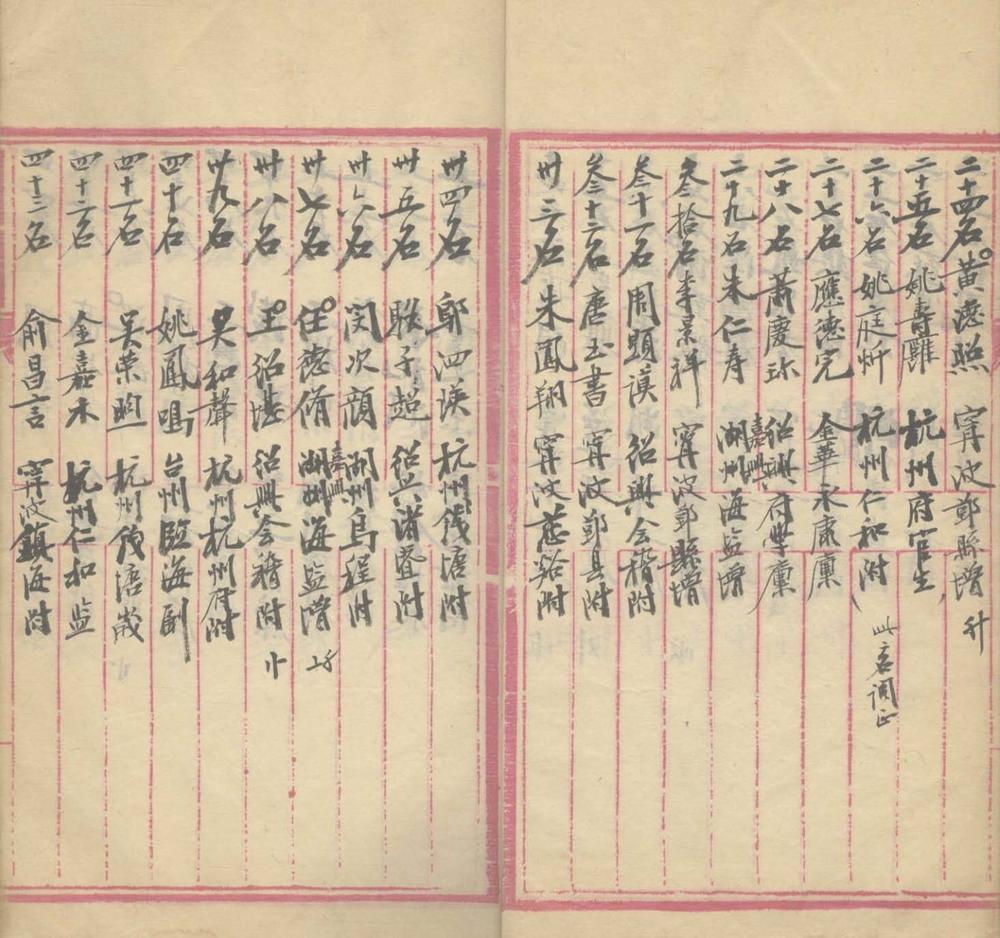 二十四名 黃德照 寧波鄞縣增 升
二十五名 姚壽 杭州府官生
二十六名 姚庭炘 杭州仁和附 此名調正
二十七名 應德完 金華永康廩
二十八名 蕭慶 紹興府學廩
二十九名 朱仁寿 嘉興湖州海监增
叁拾名 李景祥 寧波鄞縣增
叁十一名 周顕謨 绍興会稽附
叁十二名 唐玉書 寧波鄞县附
卅三名 朱鳳翔 寧波慈谿附
卅四名 泗瑛 杭州錢塘附
卅五名 子超 绍兴诸暨附
卅六名 闵次顔 湖州烏程附
卅七名 任德脩 嘉興湖州海监增
卅八名 王绍堪 绍興会稽附 升
卅九名 吴和聲 杭州杭州府附
四十名 姚鳳鳴 台州臨海副
四十一名 吴榮煦 杭州錢塘歲
四十二名 金嘉禾 杭州仁和监
四十三名 俞昌言 寧波鎮海附